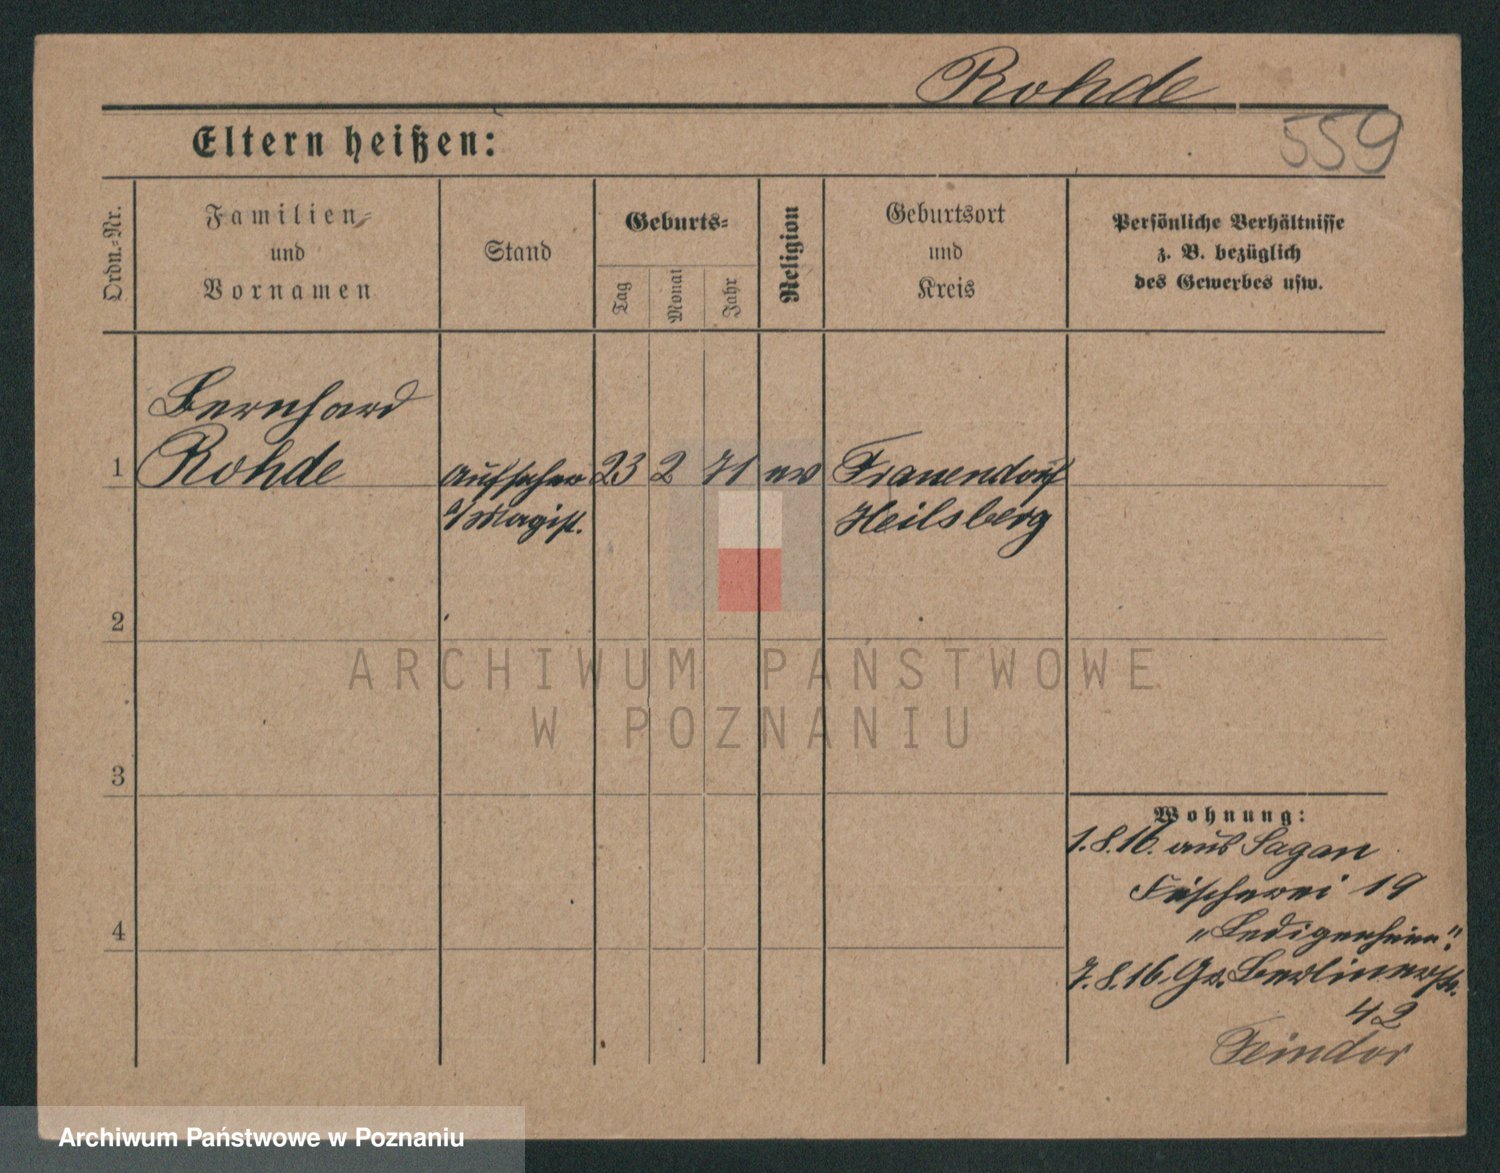 Rohde
559
Eltern heißen:
Ordn.-Nr.
Familien-
und
Vornamen
Stand
Geburts-
Tag
Monat
Jahr
Religion
Geburtsort
und
Kreis
Persönliche Verhältnisse
z. B. bezüglich
des Gewerbes usw.
Bernhard
1 Rohde Aufseher 23 2 71 ev Frauendorf
Magist. Heilsberg
2
ARCHIWUM PAŃSTWOWE
W POZNANIU
3
Wohnung:
1.8.16. aus Sagan
Fischerei 19
„Ledigenheim"
4
7.8.16. Gr. Berlinerstr.
42
Feindor
Archiwum Państwowe w Poznaniu